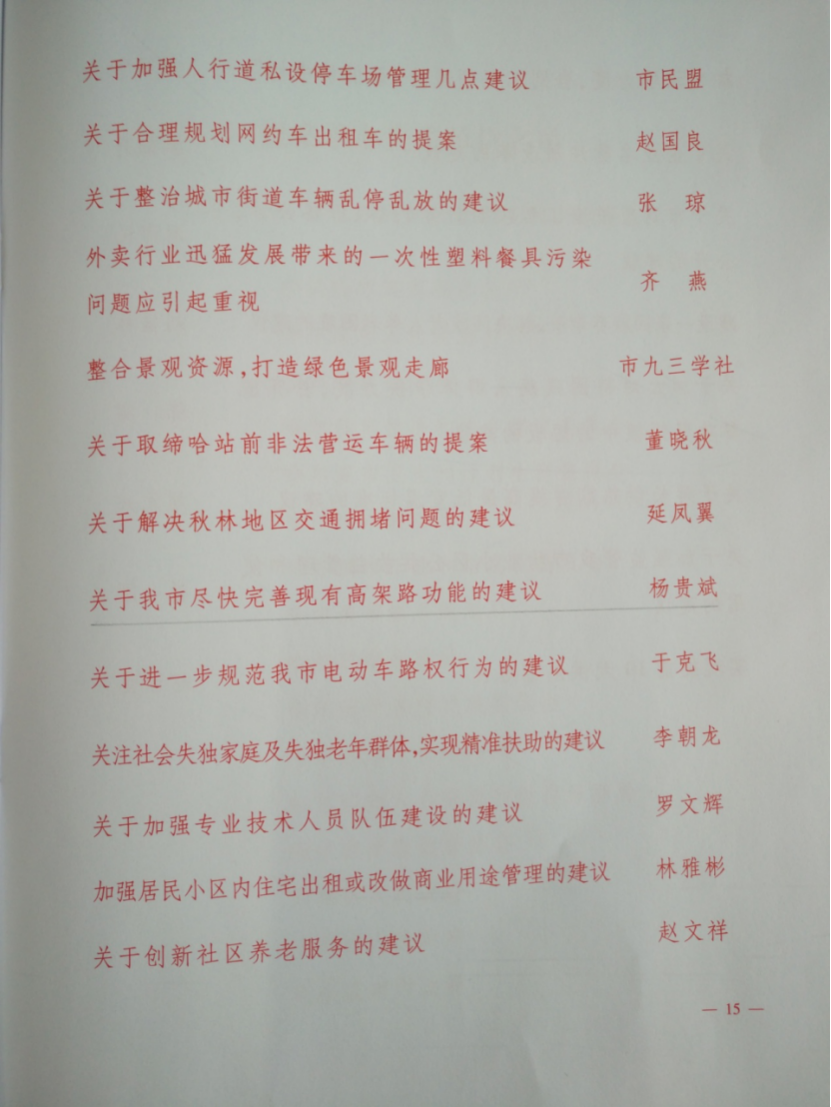 关于加强人行道私设停车场管理几点建议 市民盟
关于合理规划网约车出租车的提案 赵国良
关于整治城市街道车辆乱停乱放的建议 张 琼
外卖行业迅猛发展带来的一次性塑料餐具污染
问题应引起重视 齐 燕
整合景观资源，打造绿色景观走廊 市九三学社
关于取缔哈站前非法营运车辆的提案 董晓秋
关于解决秋林地区交通拥堵问题的建议 延凤翼
关于我市尽快完善现有高架路功能的建议 杨贵斌
关于进一步规范我市电动车路权行为的建议 于克飞
关注社会失独家庭及失独老年群体，实现精准扶助的建议 李朝龙
关于加强专业技术人员队伍建设的建议 罗文辉
加强居民小区内住宅出租或改做商业用途管理的建议 林雅彬
关于创新社区养老服务的建议 赵文祥
— 15 —